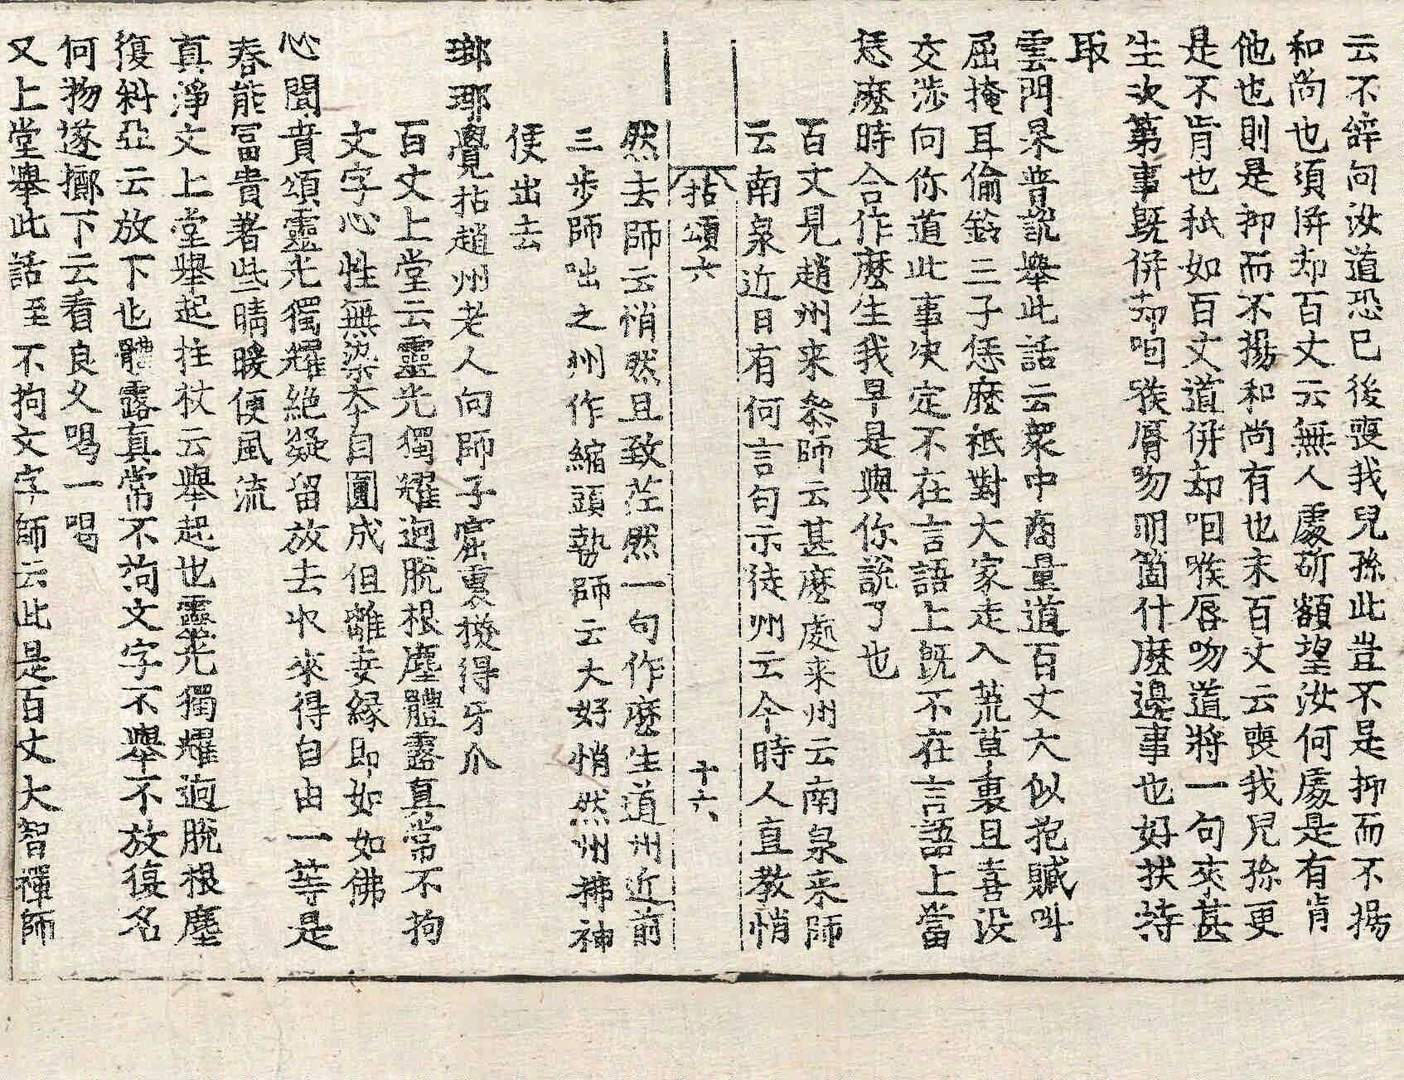 云不辝向汝道恐已後喪我兒孫此豈不是抑而不揚
和尚也須併却百丈云無人處斫額望汝何處是有肯
他也則是抑而不揚和尚有也未百丈云喪我兒孫更
是不肯也秖如百丈道併却咽喉唇吻道將一句來甚
生次第事旣併却咽喉脣吻明箇什麽邊事也好扶持
取
雲門杲普說舉此話云衆中商量道百丈大似抱贓叫
屈掩耳偷鈴三子恁麽秖對大家走入荒草裏且喜没
交涉向你道此事決定不在言語上旣不在言語上當
恁麽時合作麽生我早是與你說了也
百丈見趙州来叅師云甚麽處来州云南泉来師
云南泉近日有何言句示徒州云今時人直教悄
拈頌六
十六
然去師云悄然且致茫然一句作麽生道州近前
三步師咄之州作縮頭勢師云大好悄然州拂袖
便出去
瑯琊覺拈趙州老人向師子窟裏換得牙爪
百丈上堂云靈光獨耀迥脫根塵體露真常不拘
文字心性無染本自圓成但離妄緣即如如佛
心聞賁頌靈光獨耀絶凝留放去收來得自由一等是
春能冨貴著些晴暖便風流
真淨文上堂舉起拄杖云舉起也靈光獨耀逈脫根塵
復斜亞云放下也體露真常不拘文字不舉不放復名
何物遂擲下云看良久喝一喝
又上堂舉此話至不拘文字師云此是百丈大智禪師